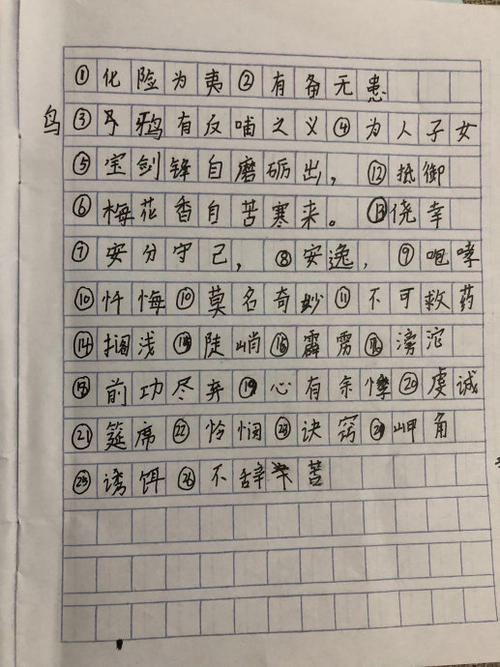 ①化险为夷②有备无患
鸟
③乌鸦有反哺之义④为人子女
⑤宝剑锋自磨砺出,⑫抵御
⑥梅花香自苦寒来。⑬侥幸
⑦安分守己,⑧安逸,⑨咆哮
⑩忏悔⑩莫名奇妙⑪不可救药
⑭搁浅⑭陡峭⑮霹雳⑯滂沱
⑰前功尽弃⑲心有余悸⑳虔诚
㉑筵席㉒怜悯㉓诀窍㉔岬角
㉕诱饵㉖不辞苦